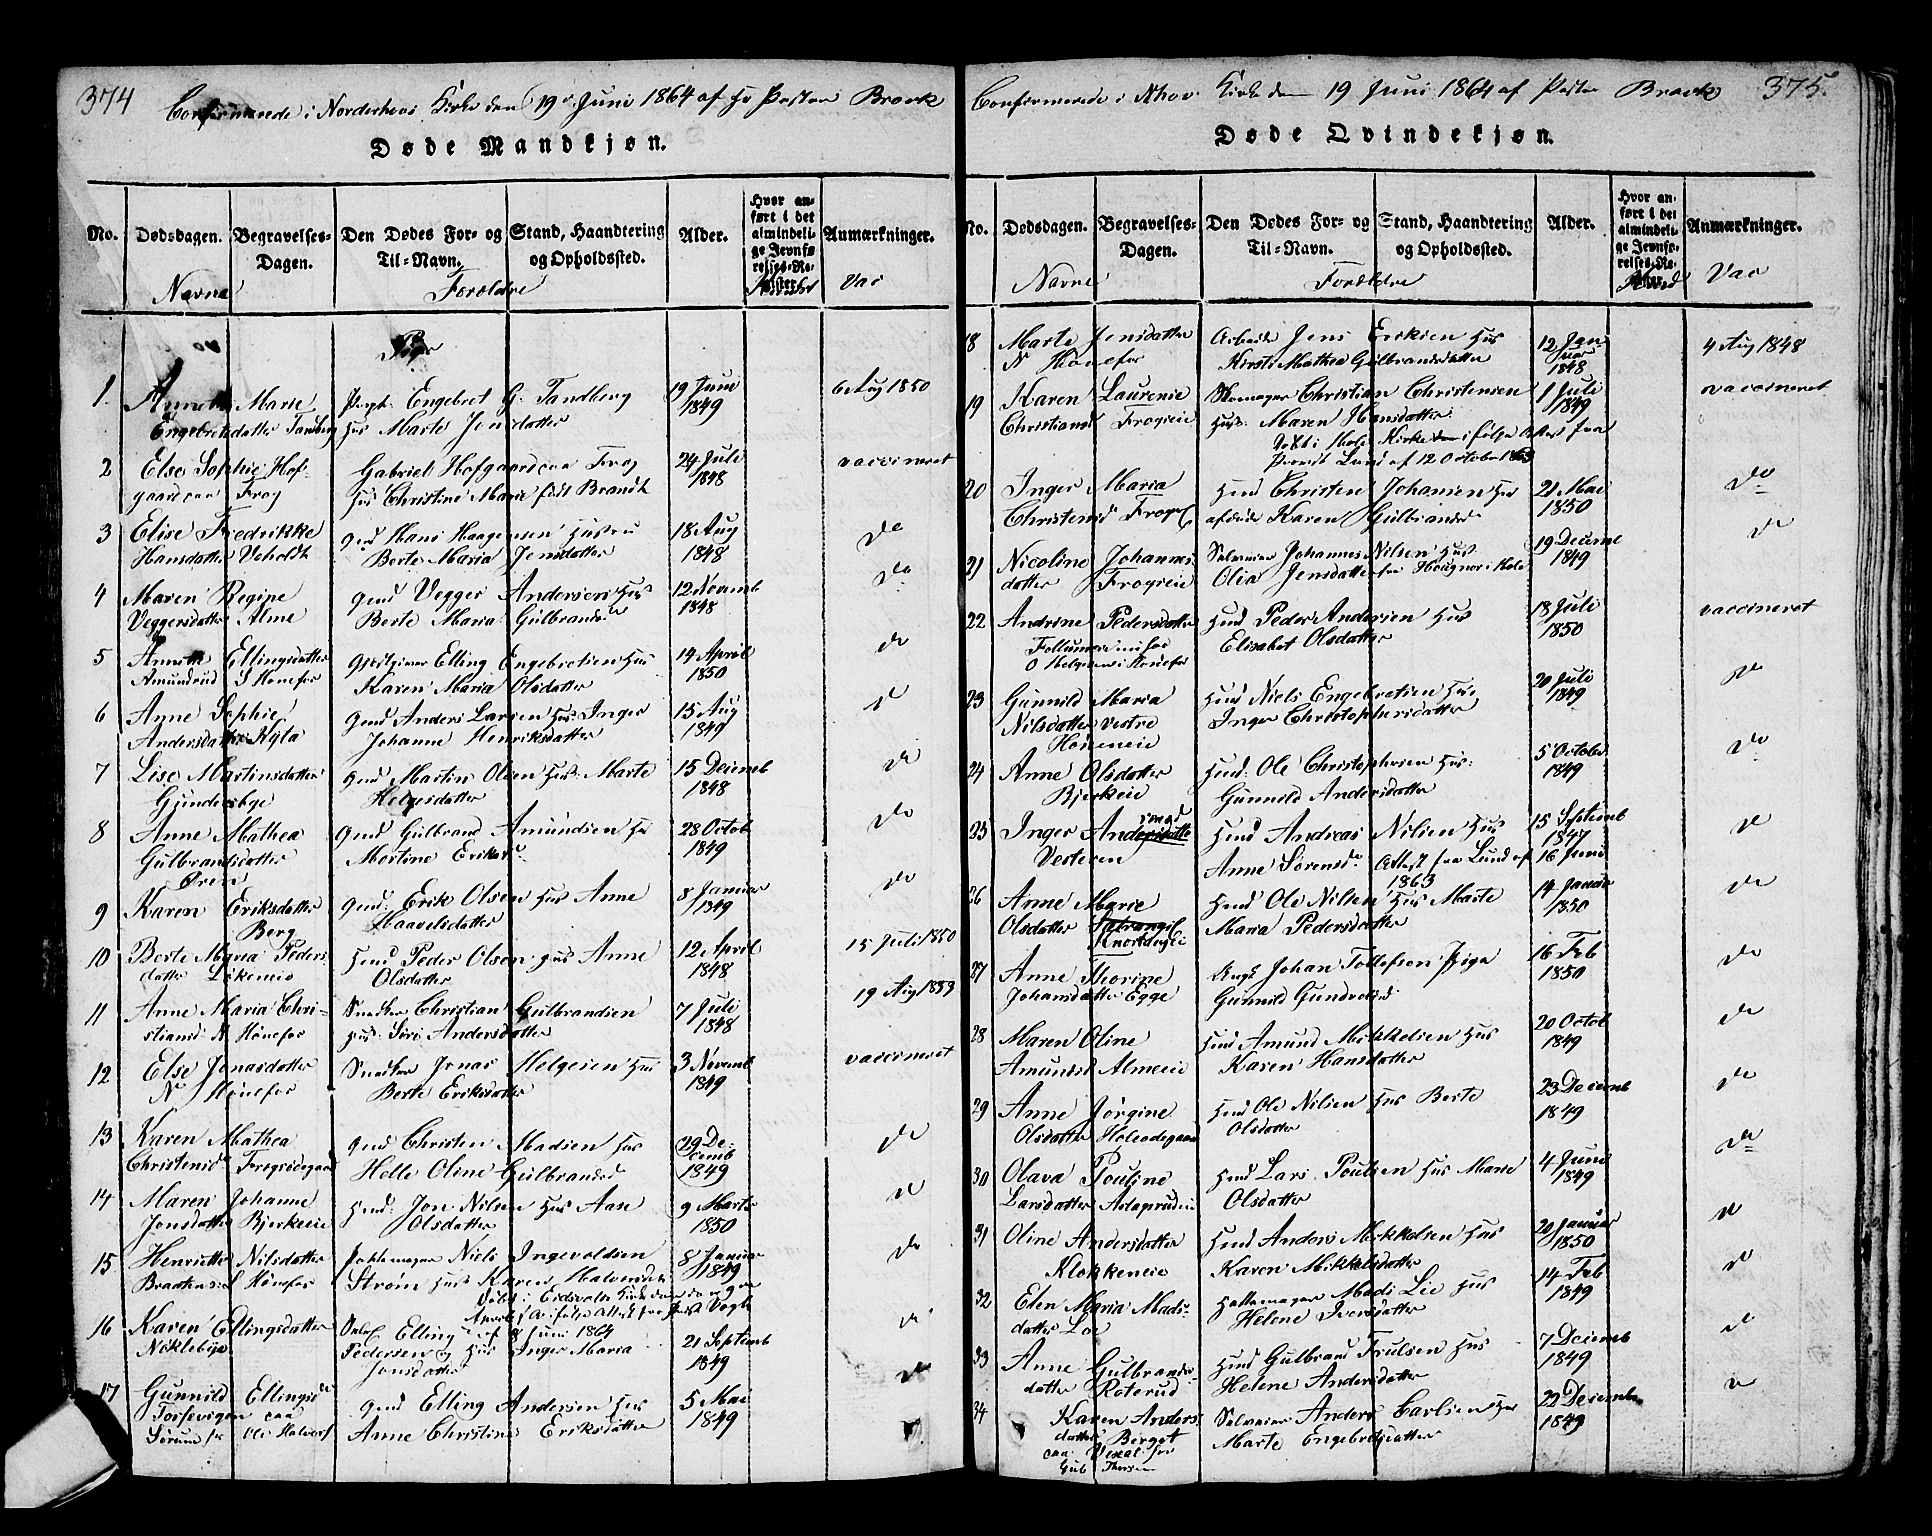 374
Confirmerede i Norderhovs Kirke den 19 Juni 1864 af Hr Pastor Brock
Døde Mandkjøn.
No.
Dødsdagen.
Begravelses-
Dagen.
Den Dødes For- og
Til-Navn.
Stand, Haandtering
og Opholdssted.
Alder.
Hvor an-
ført i det
almindeli-
ge Jevnfø-
relses-Re-
gister
Anmærkninger.
Navne
Forældre
Vac
Piger
1
Annette Marie
Engebretsdatter Tandberg
Engebret G. Tandberg
Hus Marte Jonsdatter
19 Juni
1849
6 Aug 1850
2
Else Sophie Hof-
gaard paa Frog
Gabriel Hofgaard paa Frog
Hus Christine Marie født Brandt
24 Juli
1848
vaccineret
3
Elise Fredrikke
Hansdatter Veholdt
Gmd Hans Haagensen Hustru
Berte Maria Jensdatter
18 Aug
1848
do
4
Maren Regine
Veggersdatter Alme
Gmd Vegger Andersen Hus
Berte Maria Gulbrandsd
12 Novemb
1848
do
5
Annette Ellingsdatter
Amundrud S Hønefos
Gjestgiver Elling Engebretsen Hus
Karen Maria Olsdatter
14 April
1850
do
6
Anne Sophie
Andersdatter Hyla
Gmd Anders Larsen Hus Inger
Johanne Henriksdatter
15 Aug
1849
do
7
Lise Martinsdatter
Gundersbye
Gmd Martin Olsen Hus: Marte
Helgesdatter
15 Decemb
1848
do
8
Anne Mathea
Gulbrandsdatter
Øren
Gmd Gulbrand Amundsen Hu
Martine Eriksd
28 Octob
1849
do
9
Karen Eriksdatter
Berg
Gmd. Erik Olsen Hus Anne
Haavelsdatter
8 Januar
1849
do
10
Berte Maria Peders-
datter Løkemoe
Hmd Peder Olsen Hus Anne
Olsdatter
12 April
1848
15 Juli 1850
11
Anne Maria Chri-
stiansd N Hønefos
Snedker Christian Gulbrandsen
Hus. Siri Andersdatter
7 Juli
1848
19 Aug 1859
12
Else Jonasdatter
N Hønefos
Snedker Jonas Helgesen Hus
Berte Eriksdatter
3 Novemb
1849
vaccineret
13
Karen Mathea
Christensd
Gmd Christen Madsen Hus
Helle Oline Gulbrandsd
29 De-
cemb
1849
do
14
Maren Johanne
Jonsdatter Bjerkeie
Hmd: Jon Nilsen Hus Aase
Olsdatter
9 Marts
1850
do
15
Henriette Nilsdatter
S Hønefos
Niels Ingevoldsen
Strøm Hus Karen Halvorsdatter
Døbt i Eidsvolds Kirke
8 Januar
1849
do
16
Karen Ellingsdatter
Nicklebye
Elling
Pedersen og Hus Inger Maria
Jonsdatter
8 Juni 1864
21 Septemb
1849
do
17
Gunnild Ellingsd
Sørum
Gmd Elling Andersen Hus
Anne Christine Eriksdatter
5 Mai
1849
do
375
Confirmerede i Nhov. Kirke den 19 Juni 1864 af Pastor Brock
Døde Qvindekjøn.
No.
Dødsdagen.
Begravelses-
Dagen.
Den Dødes For- og
Til-Navn.
Stand, Haandtering
og Opholdssted.
Alder.
Hvor an-
ført i det
almindeli-
ge Jevnfø-
relses-Re-
gister
Anmærkninger.
Navne
Forældre
Vac
18
Marte Jensdatter
N Hønefos
Arbeider Jens Eriksen Hus
Kirsti Mathea Gulbrandsdatter
12 Jan-
uar
1848
4 Aug 1848
19
Karen Laurenie
Christiansd Frogeie
Skomager Christian Christensen
Hus: Maren Hansdatter
Døbt i Hole Kirke ifølge Attest fra
Provst Lund af 12 October 1863
1 Juli
1849
vaccineret
20
Inger Maria
Christensd
Hmd Christen Johansen Hus
afdøde Karen Gulbrandsd
21 Mai
1850
do
21
Nicoline Johannes-
datter Frogeie
Selveier Johannes Nilsen Hus
Olia Jensdatter
19 Decemb
1849
do
22
Andrine Pedersdatter
Hmd Peder Andersen Hus
Elisabet Olsdatter
18 Juli
1850
vaccineret
23
Gunnild Maria
Nilsdatter Vestre
Høneneie
Hmd Niels Engebretsen Hus,
Inger Christophersdatter
20 Juli
1849
do
24
Anne Olsdatter
Bjerkeie
Hmd: Ole Christophersen Hus:
Gunnild Andersdatter
5 October
1849
do
25
Inger Andersdatter
Vesteren
Hmd Andreas Nilsen Hus
Anne Sørensd Attest fra Lund af 16 Juni
1863
15 Septemb
1847
do
26
Anne Marie
Olsdatter
Hmd Ole Nilsen Hus Marte
Maria Pedersdatter
14 Januar
1850
do
27
Anne Thorine
Johansdatter Egge
Ungk Johan Tollefsen Piga
Gunnild Gundvolsd
16 Feb
1850
do
28
Maren Oline
Amundsd Almeeie
Hmd Amund Mikkelsen Hus
Karen Hansdatter
20 Octob
1849
do
29
Anne Jørgine
Olsdatter
Hmd Ole Nilsen Hus Berte
Olsdatter
23 Decemb
1849
do
30
Olava Pouline
Larsdatter
Hmd Lars Poulsen Hus Marie
Olsdatter
4 Juni
1849
do
31
Oline Andersdatter
Klokkereie
Hmd Anders Mikkelsen Hus
Karen Mikkelsdatter
20 Januar
1850
do
32
Elen Maria Mads-
datter Lie
Hattemager Mads Lie Hus
Helene Iversdatter
14 Feb
1849
do
33
Anne Gulbrands-
datter Roterud
Hmd Gulbrand Trulsen Hus
Helene Andersdatter
7 Decemb
1849
do
34
Karen Anders-
datter Berget
Selveier Anders Carlsen Hus
Marte Engebretsdatter
22 Decemb
1849
do